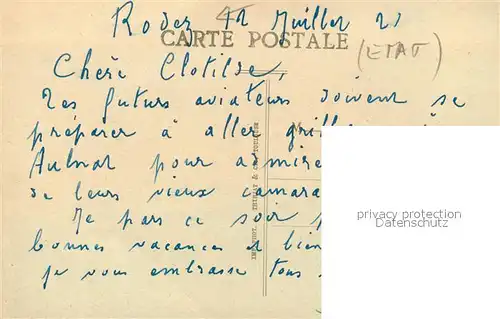 Rodez 12 Juillet 21
CARTE POSTALE
(ETAT)
Chère Clotilde,
Les futurs aviateurs doivent se
préparer à aller
Aulnat pour admire
de leurs vieux camara
Je pars ce soir p
bonnes vacances et bien
je vous embrasse tous
privacy protection
Datenschutz